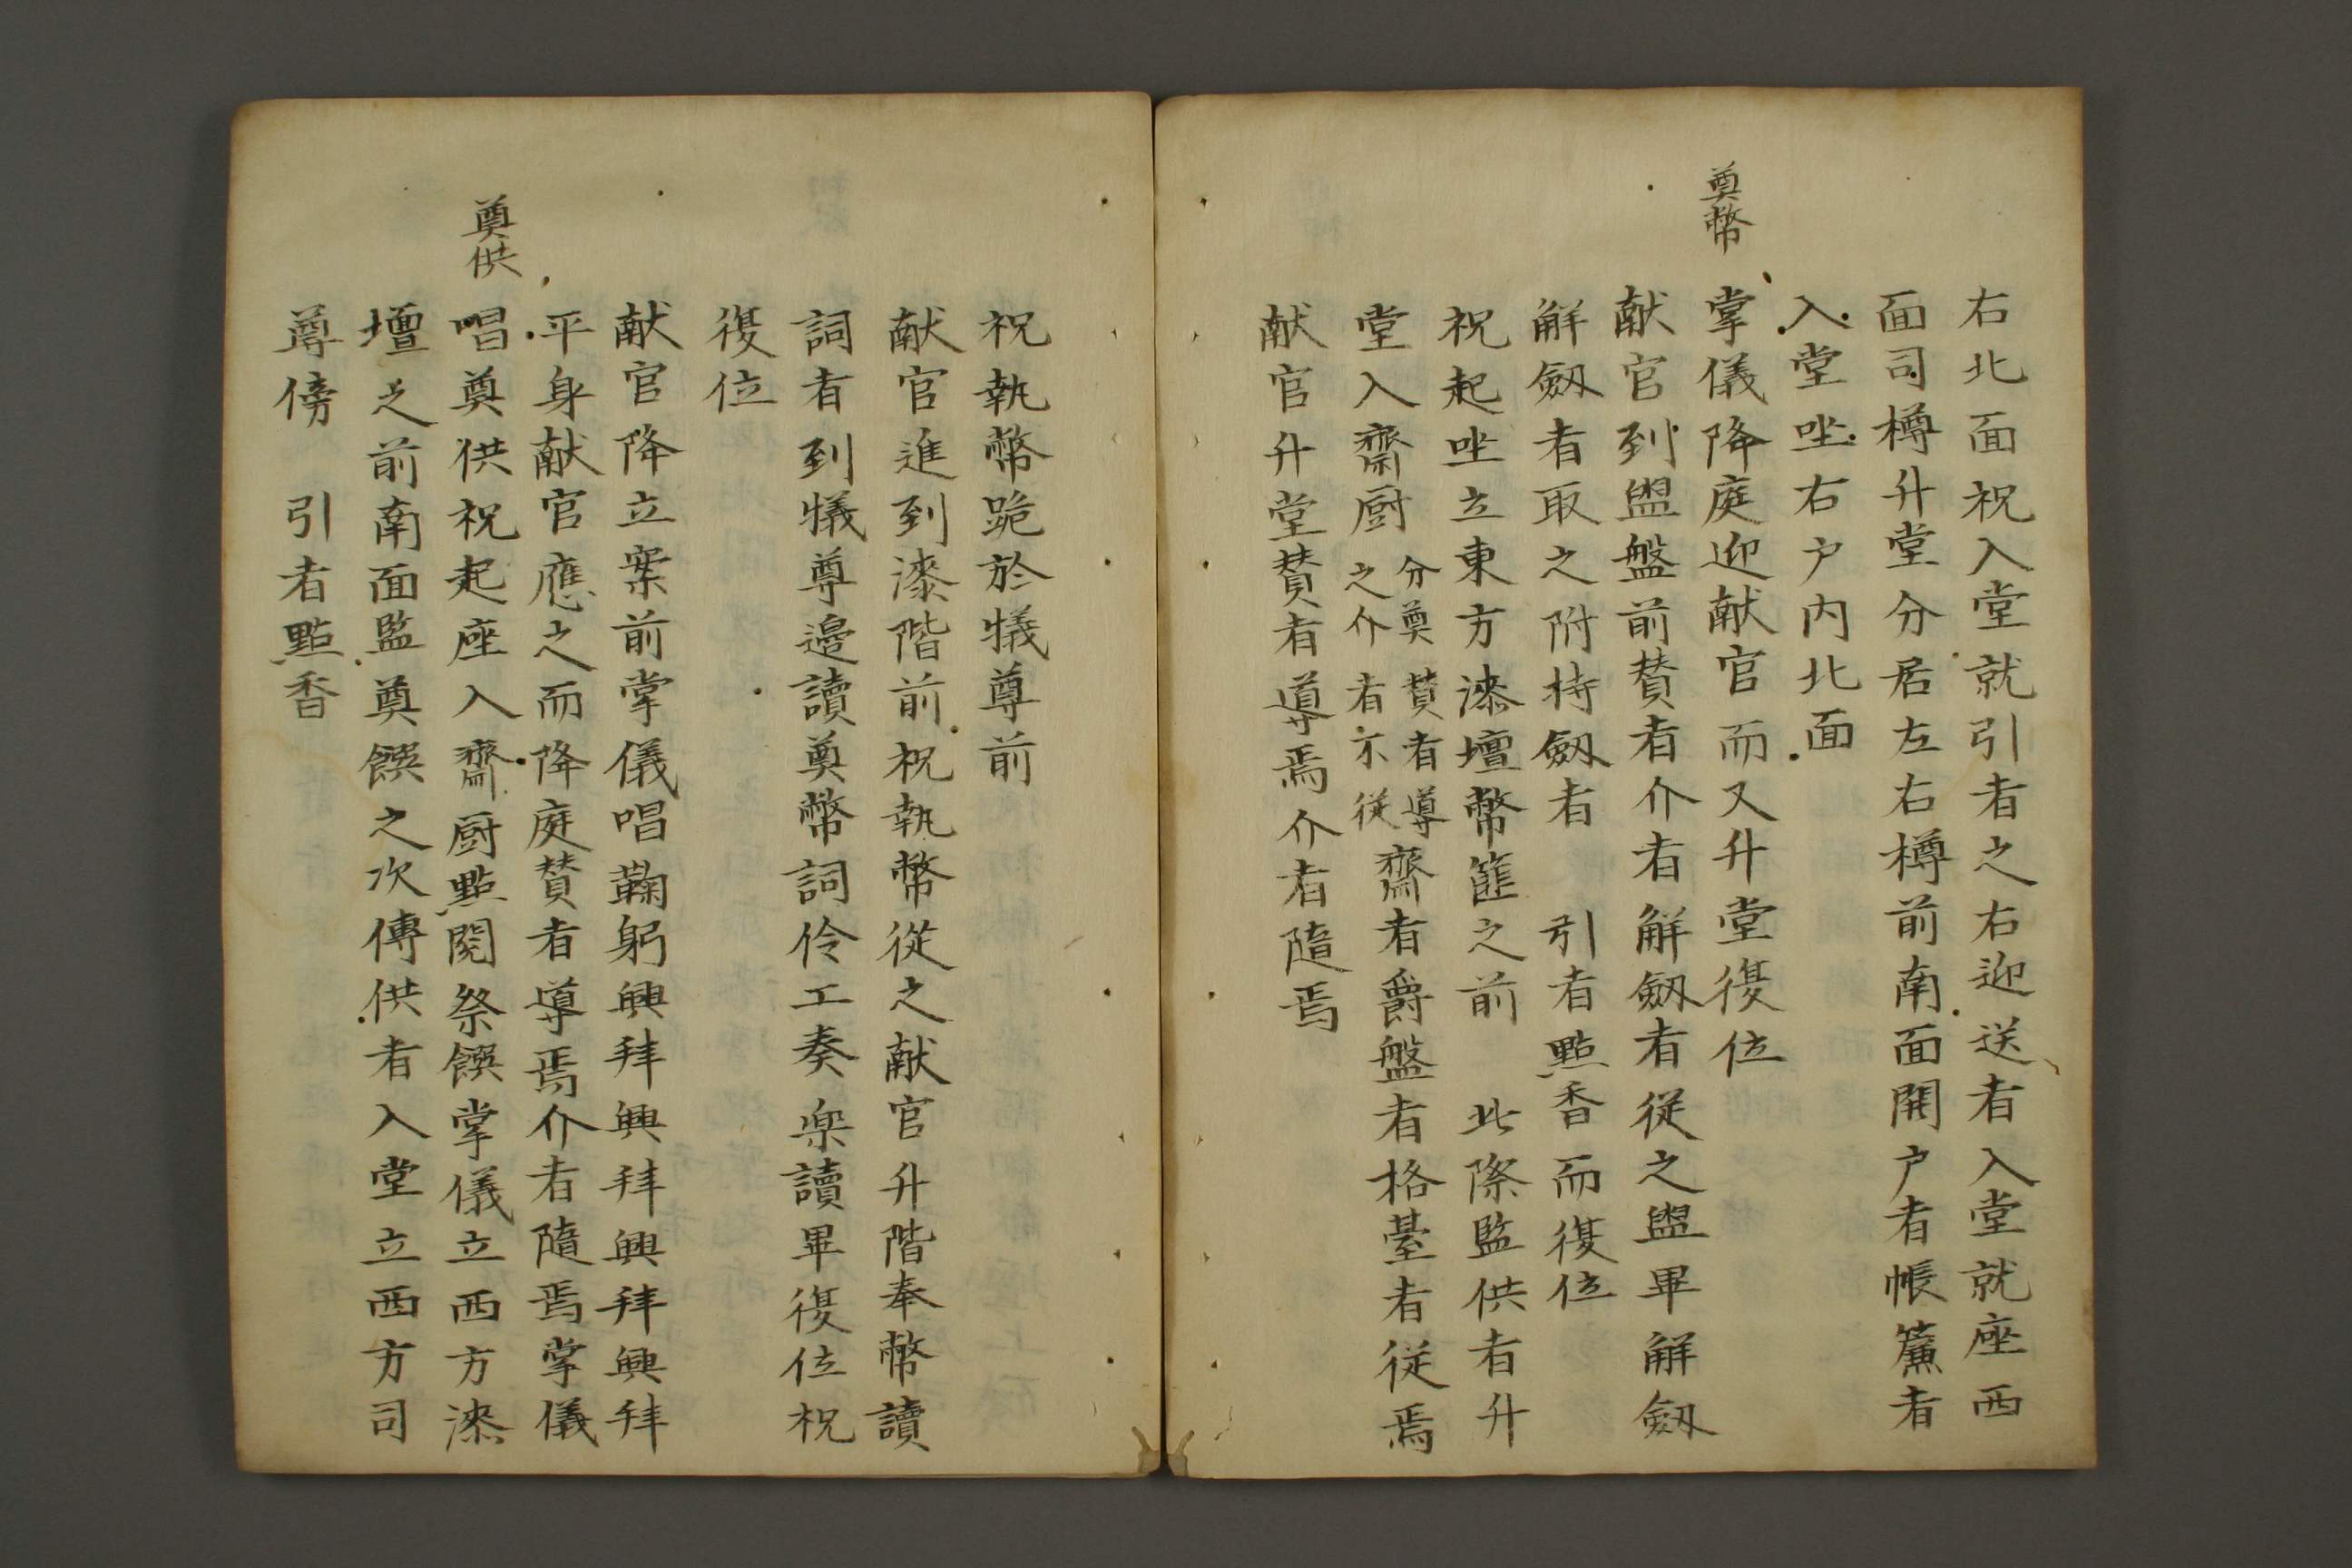 右北面祝入堂就引者之右迎送者入堂就座西
面司樽升堂分居左右樽前南面開户者帳簾者
入堂坐右户内北面
奠幣
掌儀降庭迎献官而又升堂復位
献官到盥盤前賛者介者解劔者従之盥畢解劔
解劔者取之附持劔者　引者點香而復位
祝起坐立東方漆壇幣篚之前　此際監供者升
堂入齋厨分奠賛者導
之介者不従齋者爵盤者格臺者従焉
献官升堂賛者導焉介者隨焉
祝執幣跪於犠尊前
献官進到漆階前祝執幣從之献官升階奉幣讀
詞者到犠尊邉讀奠幣詞伶工奏楽讀畢復位祝
復位
献官降立案前掌儀唱鞠躬興拜興拜興拜興拜
平身献官應之而降庭賛者導焉介者隨焉掌儀
奠供
唱奠供祝起座入齋厨點閲祭饌掌儀立西方漆
壇之前南面監奠饌之次傳供者入堂立西方司
尊傍　引者點香